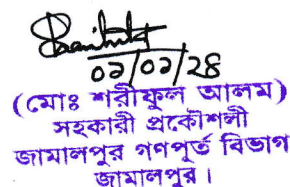 ০১/০১/২৪
(মোঃ শরীফুল আলম)
সহকারী প্রকৌশলী
জামালপুর গণপূর্ত বিভাগ
জামালপুর।